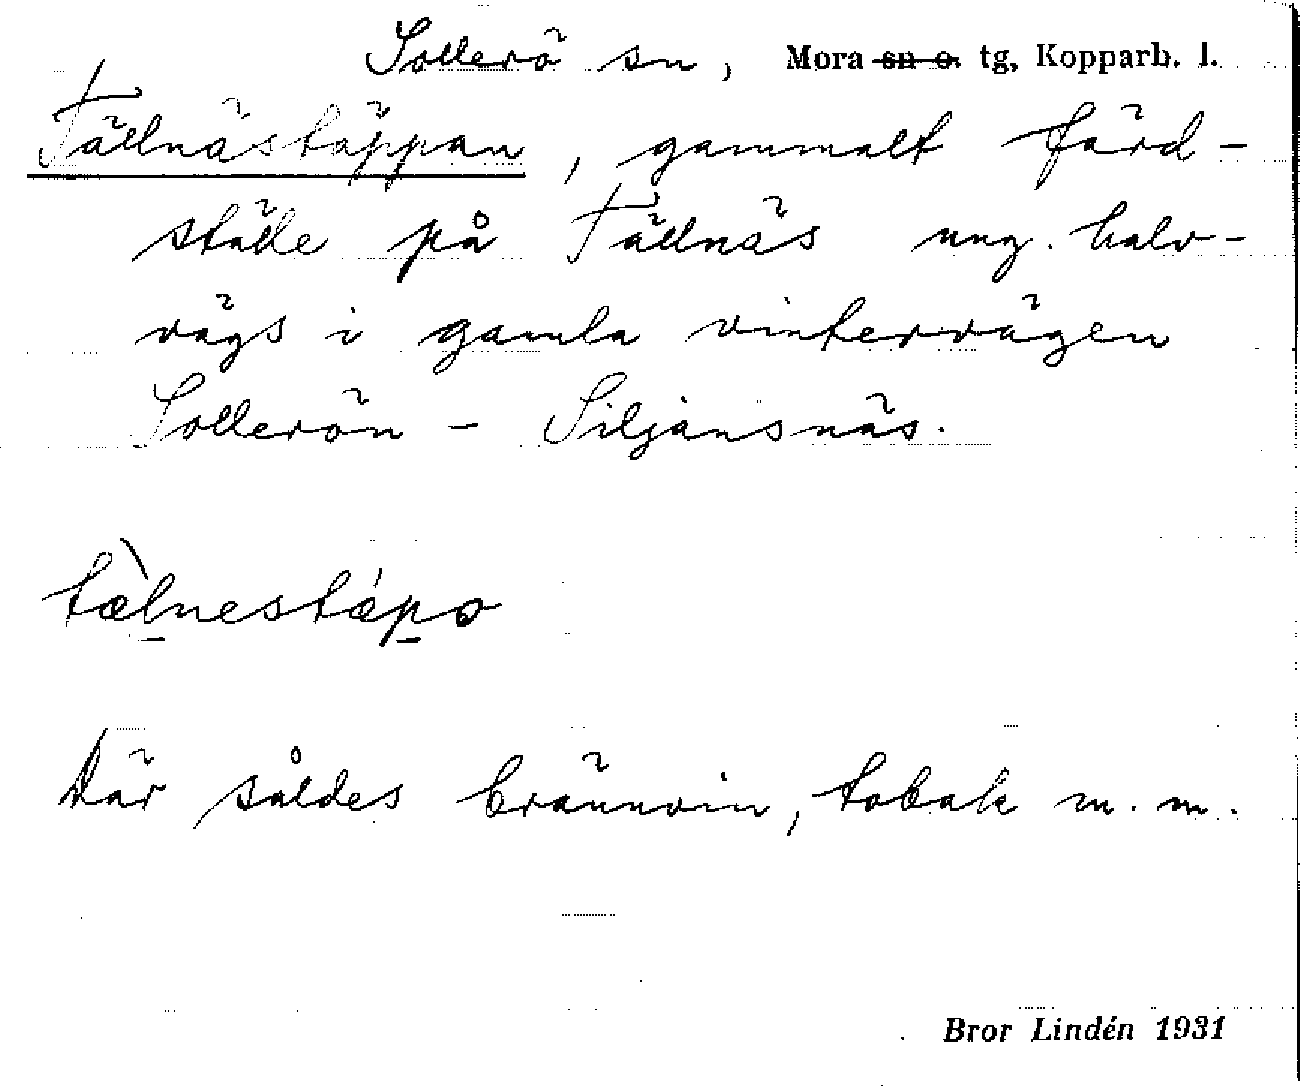 Sollerö sn, Mora sn o. tg, Kopparb. l.
Tällnästäppan, gammalt färd-
ställe på Tällnäs ung. halv-
vägs i gamla vintervägen
Sollerön - Siljansnäs.
tæ̀lnestápo
Där såldes brännvin, tobak m. m.
Bror Lindén 1931